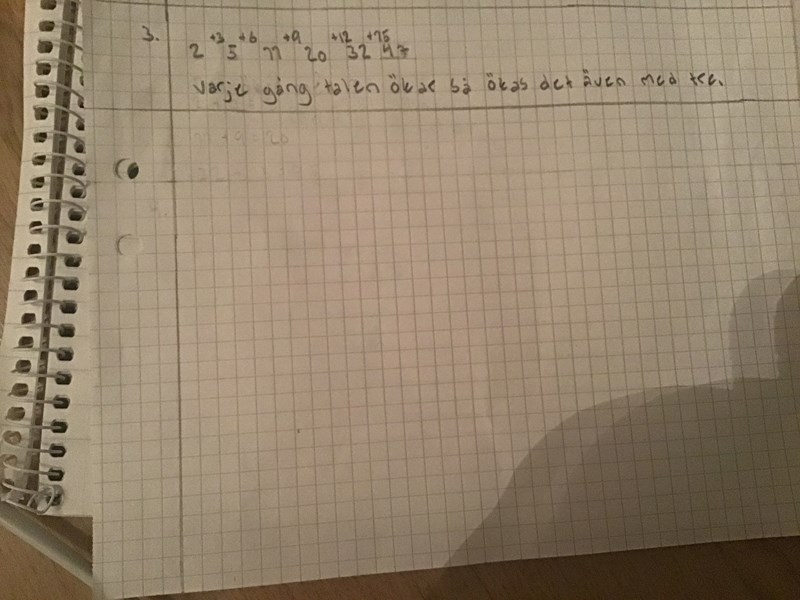 3.
+3 +6 +9 +12 +15
2 5 11 20 32 47
varje gång talen ökar så ökas det även med tre.